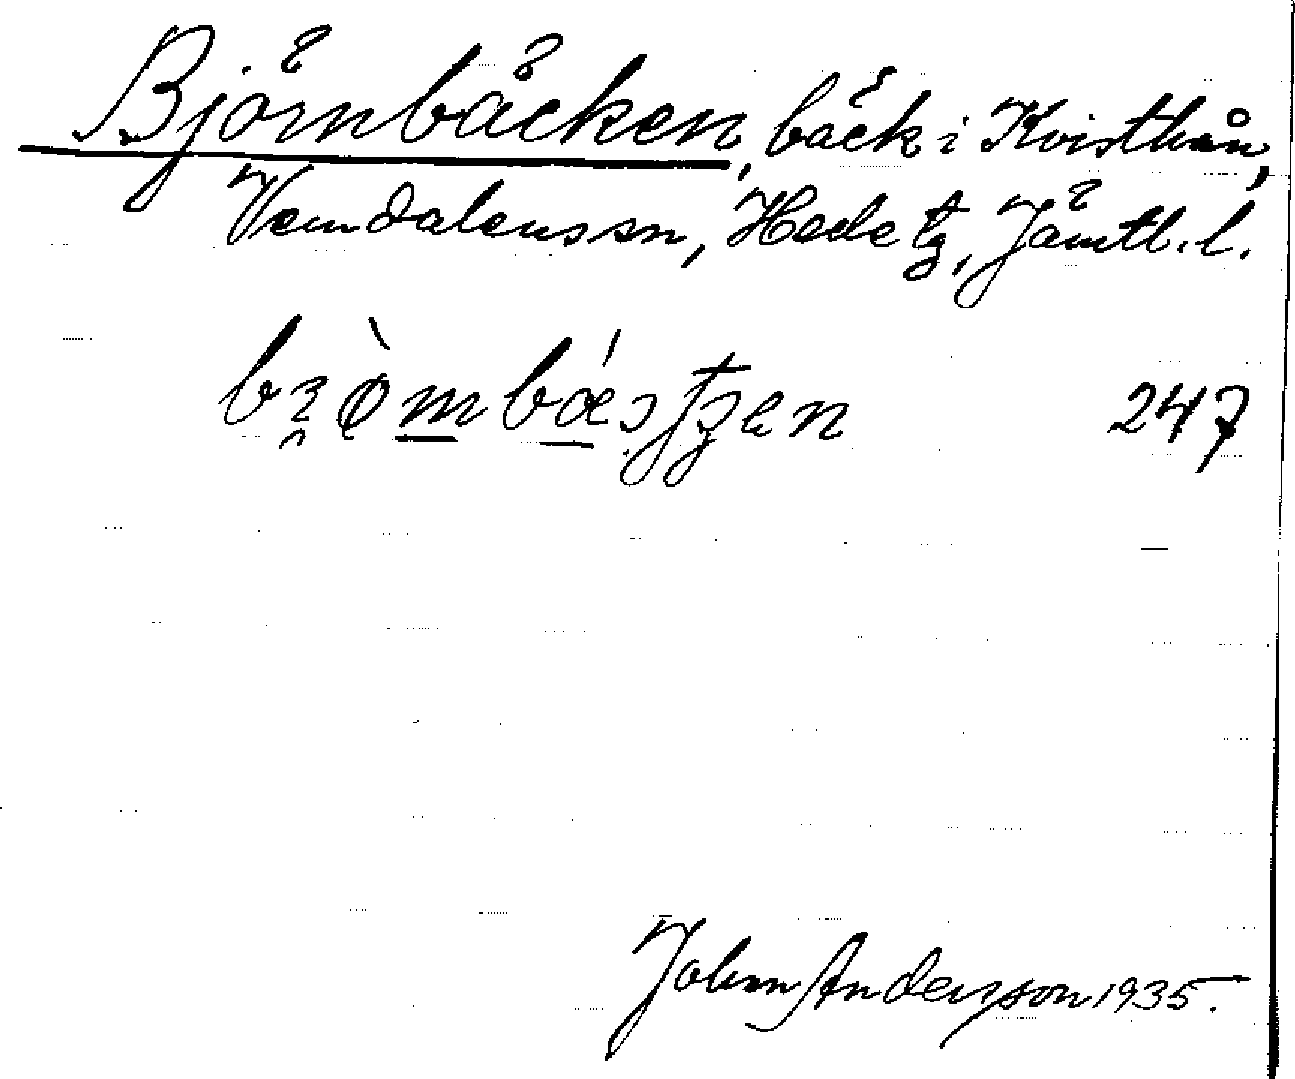 Björnbäcken, bäck i Kvisthån,
Vemdalens sn, Hede tg, Jämtl. l.
247
John Andersson 1935.